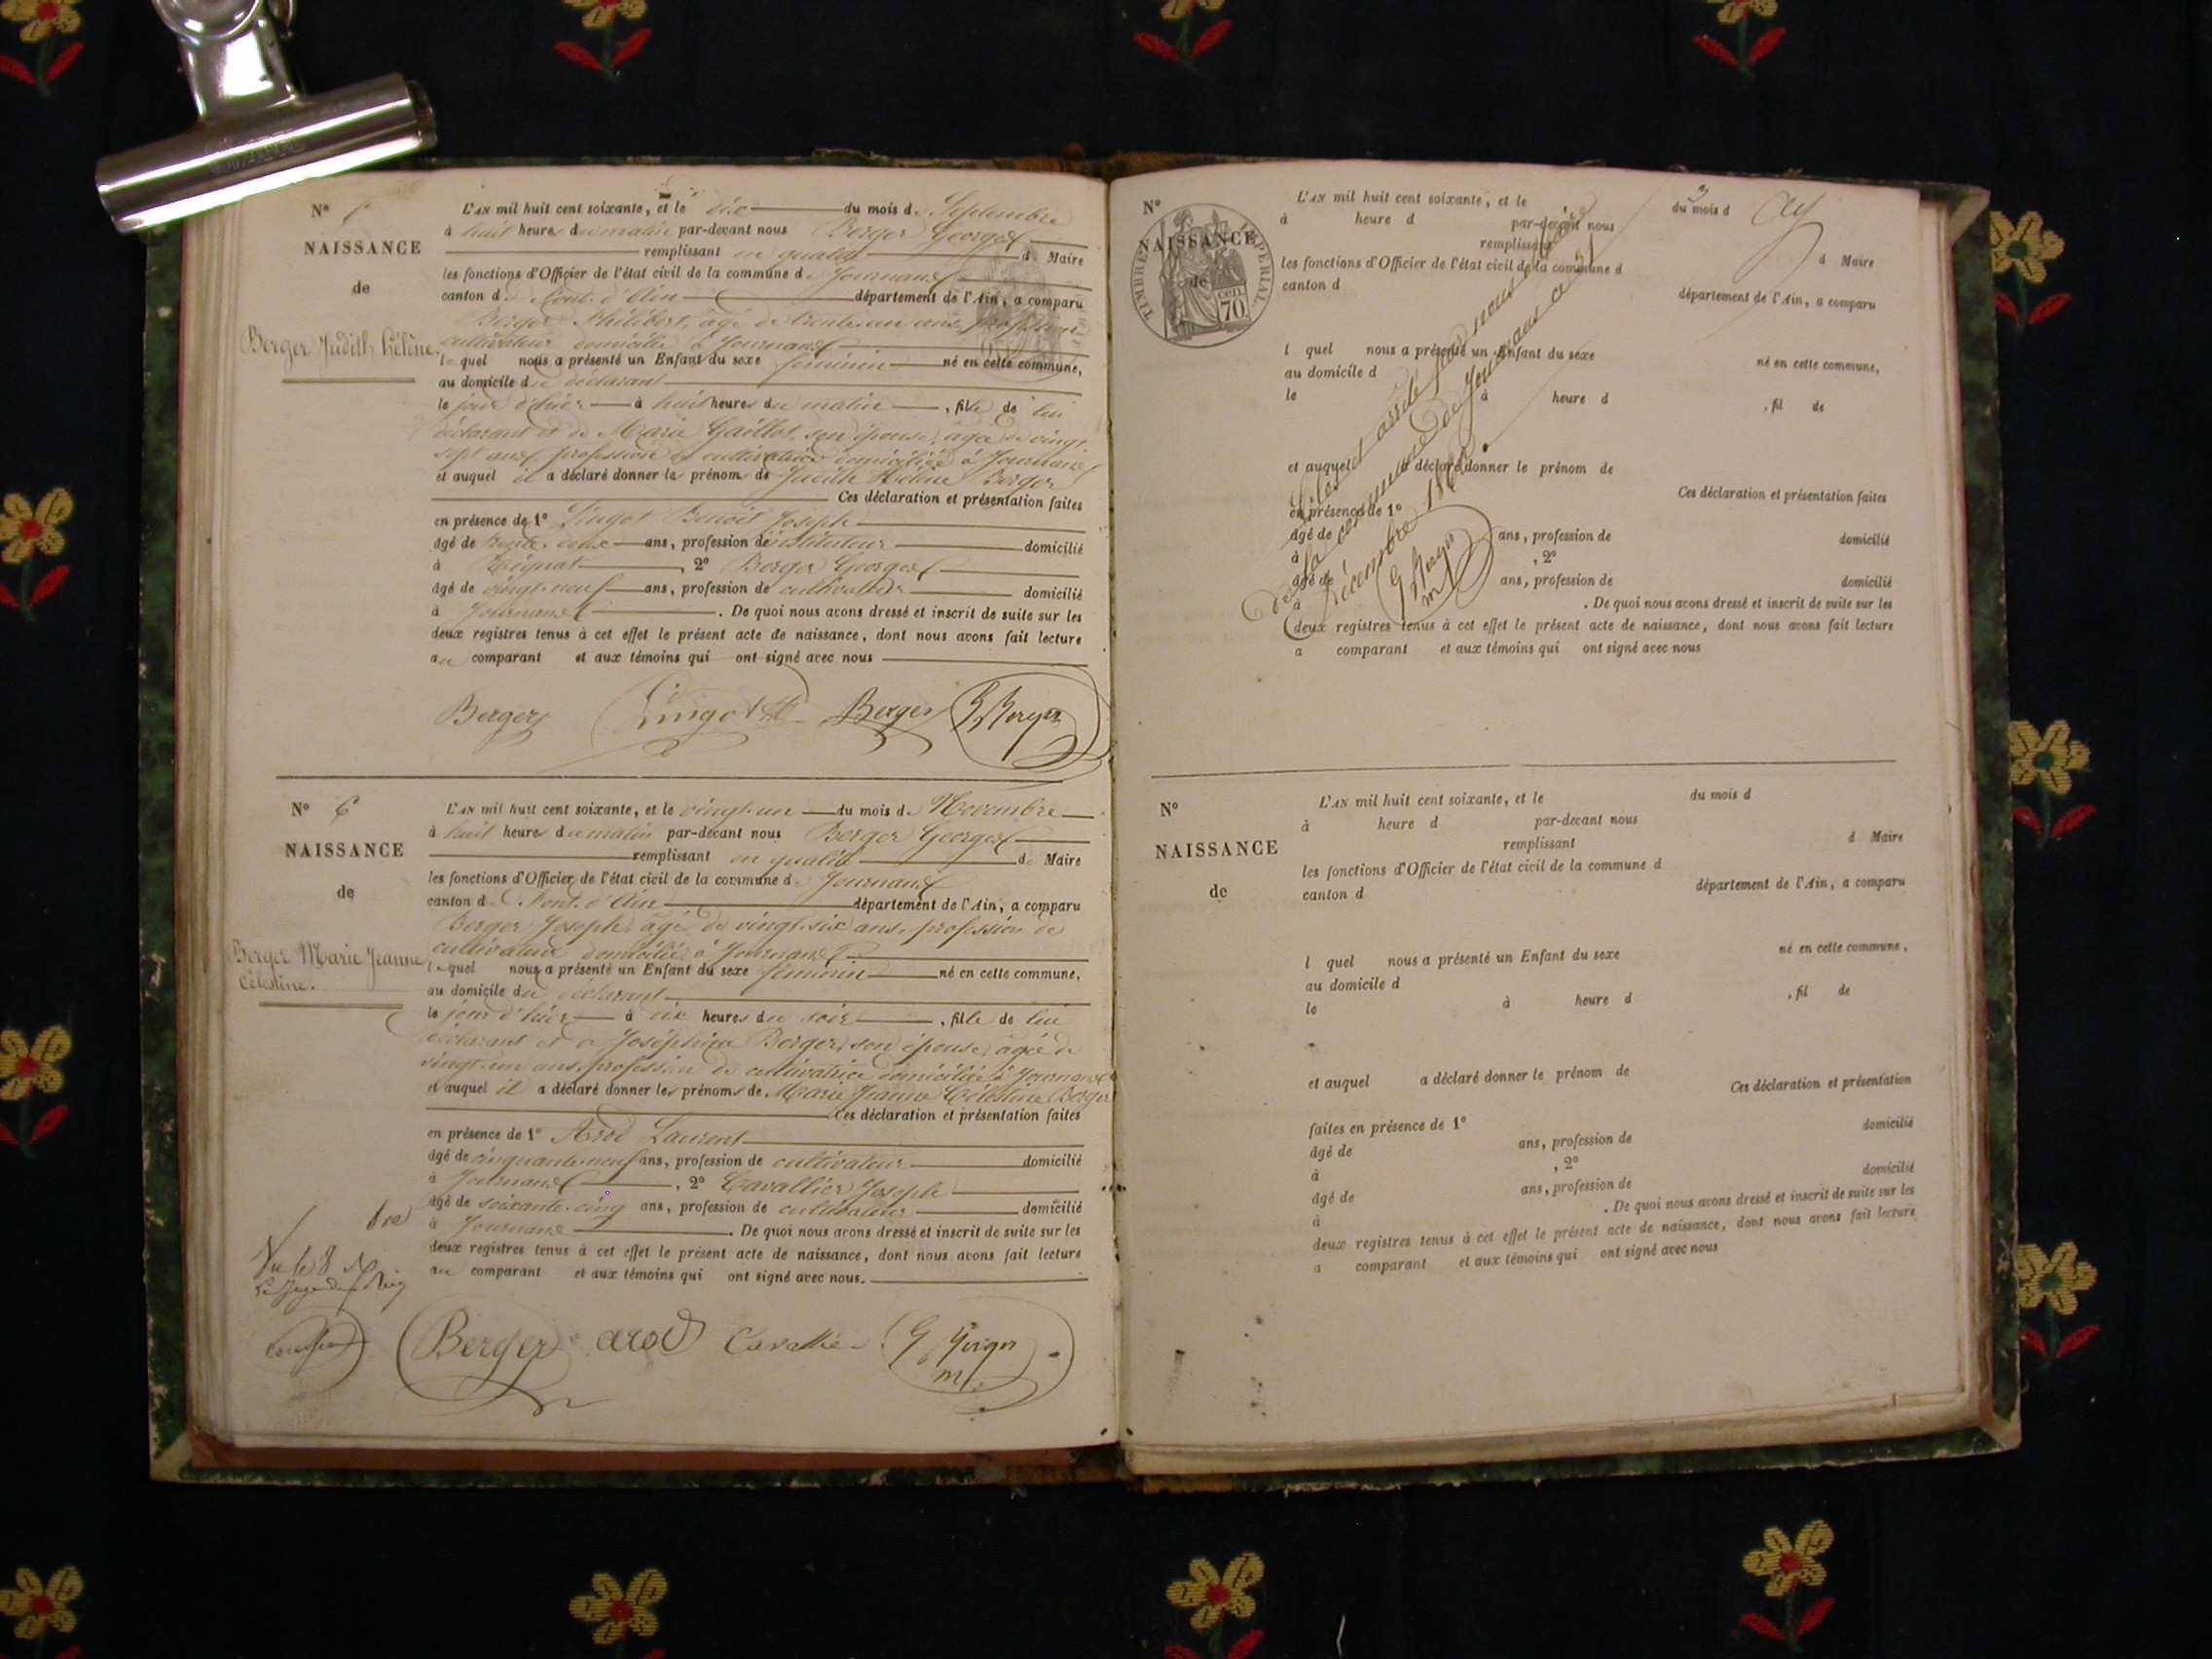 N° 5
NAISSANCE
de
Berger Judith hélène.
L'AN mil huit cent soixante, et le dix du mois de Septembre
à huit heures du matin par-devant nous Berger Georges
remplissant en qualité de Maire
les fonctions d'Officier de l'état civil de la commune de Journans
canton de Pont-d'Ain département de l'Ain, a comparu
Berger Philibert, âgé de trente-un ans, profession
cultivateur domicilié à Journans
lequel nous a présenté un Enfant du sexe féminin né en cette commune,
au domicile du déclarant
le jour d'hier à huit heures du matin, fille de lui
déclarant et de Marie Gaillot, son épouse, âgée de vingt
sept ans, profession de cultivatrice domiciliée à Journans
et auquel il a déclaré donner les prénoms de Judith Hélène Berger
Ces déclaration et présentation faites
en présence de 1° Lingot Benoit Joseph
âgé de trente ans, profession d'instituteur domicilié
à , 2° Berger Georges
âgé de vingt-neuf ans, profession de cultivateur domicilié
à Journans. De quoi nous avons dressé et inscrit de suite sur les
deux registres tenus à cet effet le présent acte de naissance, dont nous avons fait lecture
au comparant et aux témoins qui ont signé avec nous
Berger Lingot Berger G Berger
N° 6
NAISSANCE
de
Berger Marie Jeanne
Célestine.
L'AN mil huit cent soixante, et le vingt-un du mois de Novembre
à huit heures du matin par-devant nous Berger Georges
remplissant en qualité de Maire
les fonctions d'Officier de l'état civil de la commune de Journans
canton de Pont-d'Ain département de l'Ain, a comparu
Berger Joseph, âgé de vingt-six ans, profession de
cultivateur domicilié à Journans
lequel nous a présenté un Enfant du sexe féminin né en cette commune,
au domicile du déclarant
le jour d'hier à dix heures du soir, fille de lui
déclarant et de Joséphine Berger, son épouse, âgée de
vingt-un ans, profession de cultivatrice domiciliée à Journans
et auquel il a déclaré donner les prénoms de Marie Jeanne Célestine Berger
Ces déclaration et présentation faites
en présence de 1° Arod Laurent
âgé de cinquante-neuf ans, profession de cultivateur domicilié
à Journans, 2° Cavallier Joseph
âgé de soixante-cinq ans, profession de cultivateur domicilié
à Journans. De quoi nous avons dressé et inscrit de suite sur les
deux registres tenus à cet effet le présent acte de naissance, dont nous avons fait lecture
au comparant et aux témoins qui ont signé avec nous.
Vu le 8
Berger arod Cavallier G Berger
m
N°
NAISSANCE
de
TIMBRE IMPÉRIAL
70 cen
L'AN mil huit cent soixante, et le du mois d
à heure d par-devant nous
remplissant d Maire
les fonctions d'Officier de l'état civil de la commune d
canton d département de l'Ain, a comparu
l quel nous a présenté un Enfant du sexe né en cette commune,
au domicile d
le à heure d , fil de
et auquel a déclaré donner le prénom de
Ces déclaration et présentation faites
en présence de 1°
âgé de ans, profession de domicilié
à , 2°
âgé de ans, profession de domicilié
à . De quoi nous avons dressé et inscrit de suite sur les
deux registres tenus à cet effet le présent acte de naissance, dont nous avons fait lecture
a comparant et aux témoins qui ont signé avec nous
Clos et arrêté par nous Maire
de la commune de Journans ce 31
Décembre 1860.
G Berger
m
N°
NAISSANCE
de
L'AN mil huit cent soixante, et le du mois d
à heure d par-devant nous
remplissant d Maire
les fonctions d'Officier de l'état civil de la commune d
canton d département de l'Ain, a comparu
l quel nous a présenté un Enfant du sexe né en cette commune,
au domicile d
le à heure d , fil de
et auquel a déclaré donner le prénom de
Ces déclaration et présentation
faites en présence de 1°
âgé de ans, profession de domicilié
à , 2°
âgé de ans, profession de domicilié
à . De quoi nous avons dressé et inscrit de suite sur les
deux registres tenus à cet effet le présent acte de naissance, dont nous avons fait lecture
a comparant et aux témoins qui ont signé avec nous